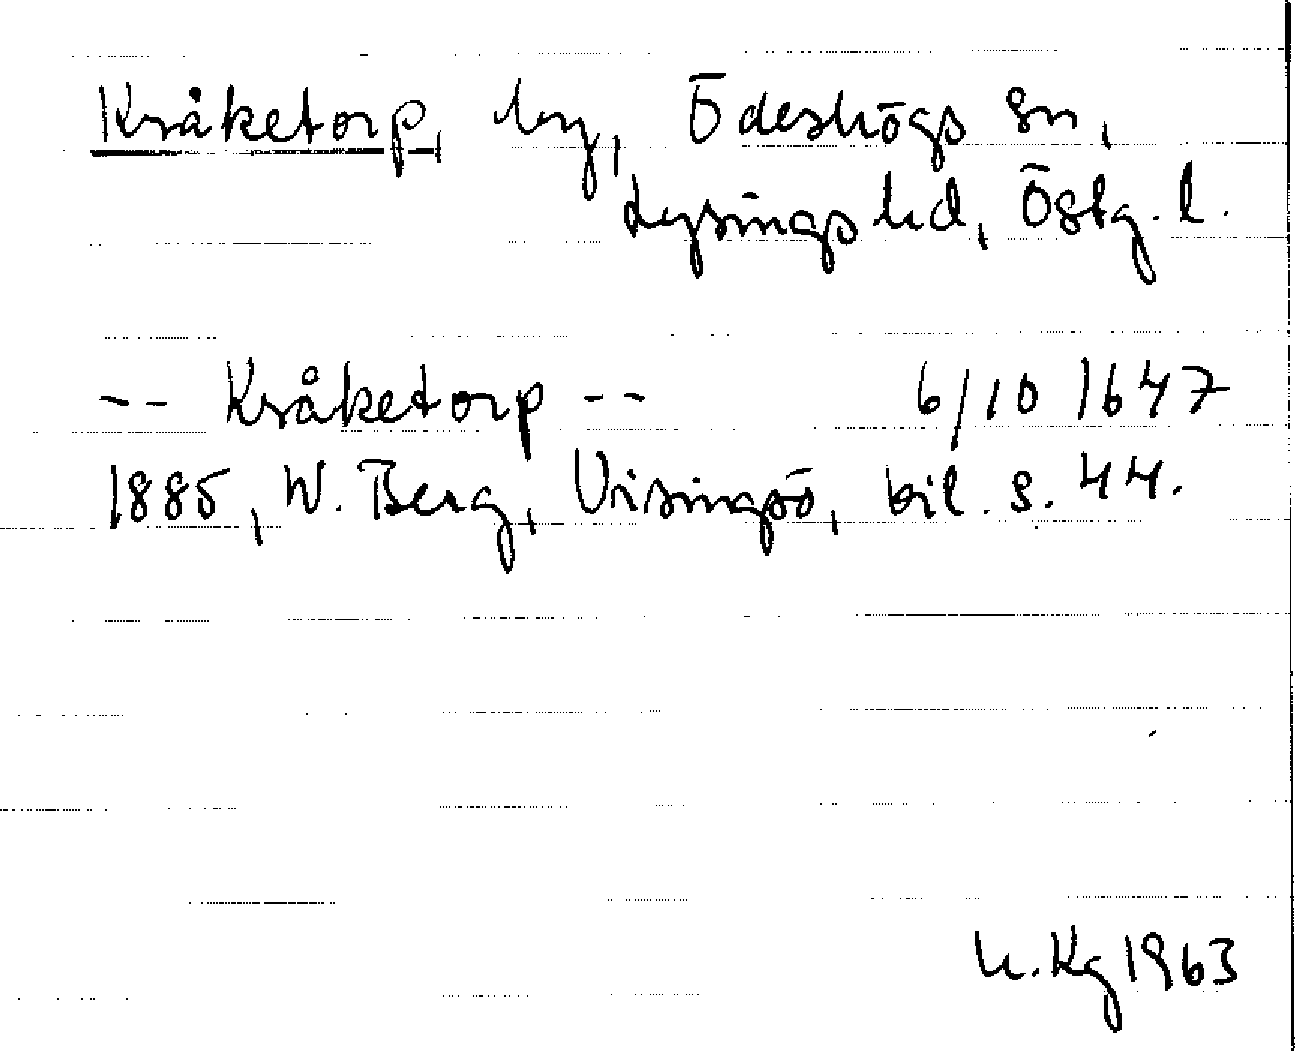 Kråketorp, by, Ödeshögs sn,
Lysings hd, Östg. l.
-- Kråketorp -- 6/10 1647
1885, W. Berg, Visingsö, bil. s. 44.
h.Kg 1963